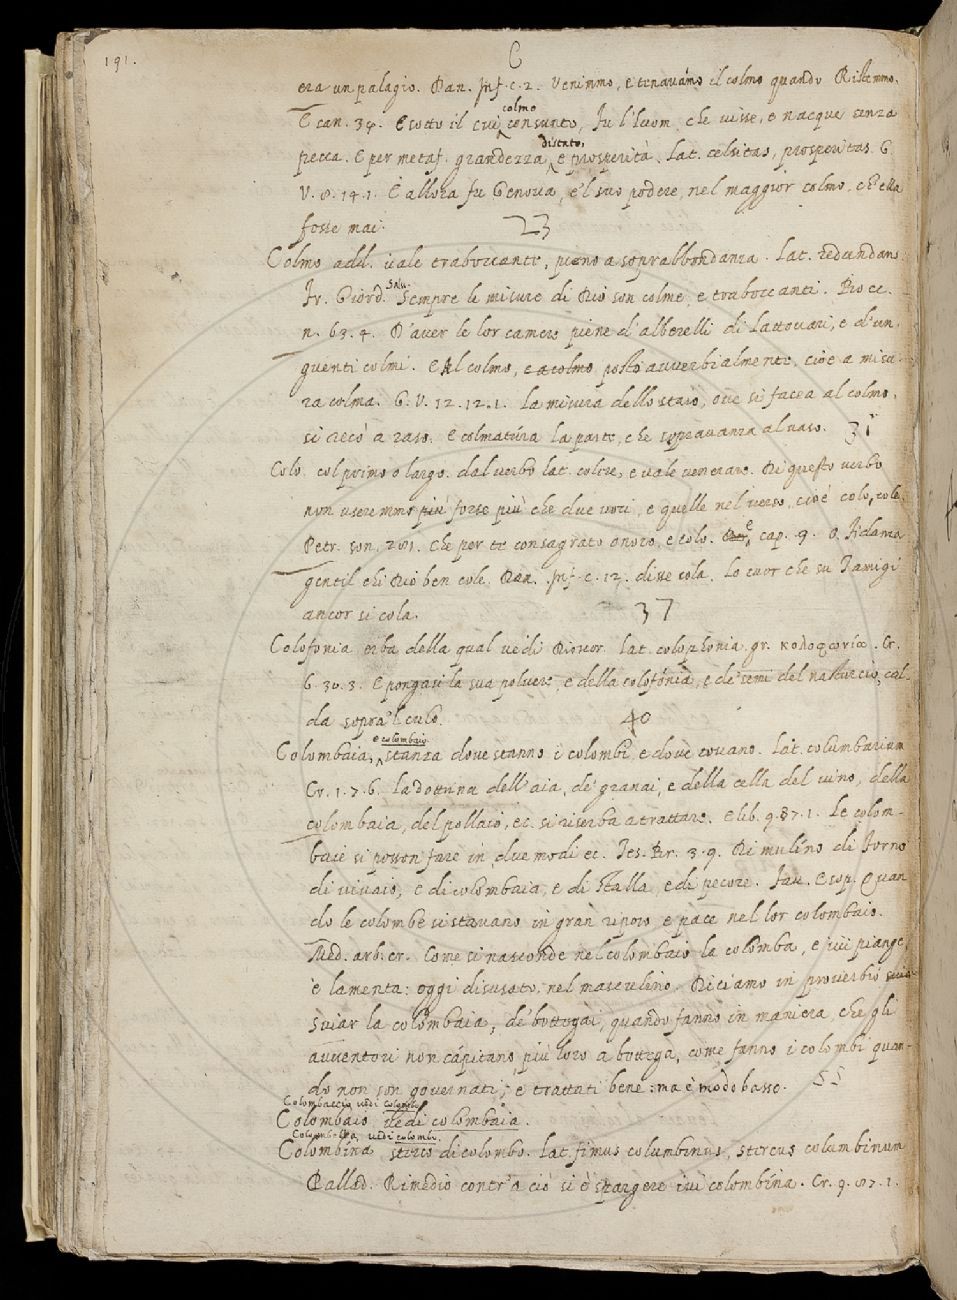 191.
C
era un palagio. Dan. Inf. c. 2. Venimmo, e tenavamo il colmo quando Ristemmo.
E can. 34. E sotto il cui
colmo
censunto, fu l'huom che visse, e nacque senza
pecca. E per metaf. grandezza
distato,
e prosperità. Lat. celsitas, prosperitas. G.
V. 8. 14. 1. E allora fu Genova, e 'l suo podere, nel maggior colmo, ch'ella
fosse mai.
23
Colmo add. vale traboccante, pieno a soprabbondanza. Lat. redundans
Fr. Giord.
Salv.
Sempre le misure di Dio son colme, e traboccanti. Bocc.
n. 63. 4. D'aver le lor camere piene d'alberelli di Lattovari, e d'un-
guenti colmi. E Al colmo, e a colmo, posto avverbialmente, cioè a misu-
ra colma. G. V. 12. 12. 1. La misura dello staio, ove si facea al colmo,
si recò a raso. E colmatura la parte, che sopravanza al vaso. 31
Colo. col primo o largo. dal verbo lat. colere, e vale venerare. Di questo verbo
non useremmo più forse più che due voci, e quelle nel verso, cioè colo, cole
Petr. son. 281. Che per te consagrato onoro, e colo.
E
cap. 9. O fidanza
gentil chi Dio ben cole. Dan. Inf. c. 12. disse cola. Lo cuor che su Tamigi
ancor si cola.
37
Colofonia erba della qual vedi Dioscor. Lat. colophonia. gr. κολοφωνία. Cr.
6. 30. 3. E pongasi la sua polvere, e della colofonia, e de' semi del nasturcio, cal-
da sopra 'l culo.
40
Colombaia,
e colombaio.
stanza dove stanno i colombi, e dove covano. Lat. columbarium
Cr. 1. 7. 6. La dottrina dell'aia, de' granai, e della cella del vino, della
colombaia, del pollaio, ec. si riserba a trattare. E lib. 9. 87. 1. Le colom-
baie si posson fare in due modi ec. Tes. Br. 3. 9. Di mulino di forno
di vivaio, e di colombaia, e di stalla, e di pecore. Fav. Esop. Quan
do le colombe si stavano in gran riposo e pace nel lor colombaio.
Med. arb. cr. Come si nasconde nel colombaio la colomba, e ivi piange,
e lamenta: oggi disusato, nel masculino. Diciamo in proverbio
Sviar la colombaia, de' bottegai, quando fanno in maniera, che gli
avventori non capitano più loro a bottega, come fanno i colombi quan-
do non son governati, e trattati bene: ma è modo basso. 55
Colombaccio vedi colombo
Colombaio vedi colombaia.
Colombella, vedi colombo.
Colombina sterco di colombo. Lat. fimus columbinus, stercus columbinum
Pallad. Rimedio contr'a ciò si è spargere ivi colombina. Cr. 9. 87. 1.